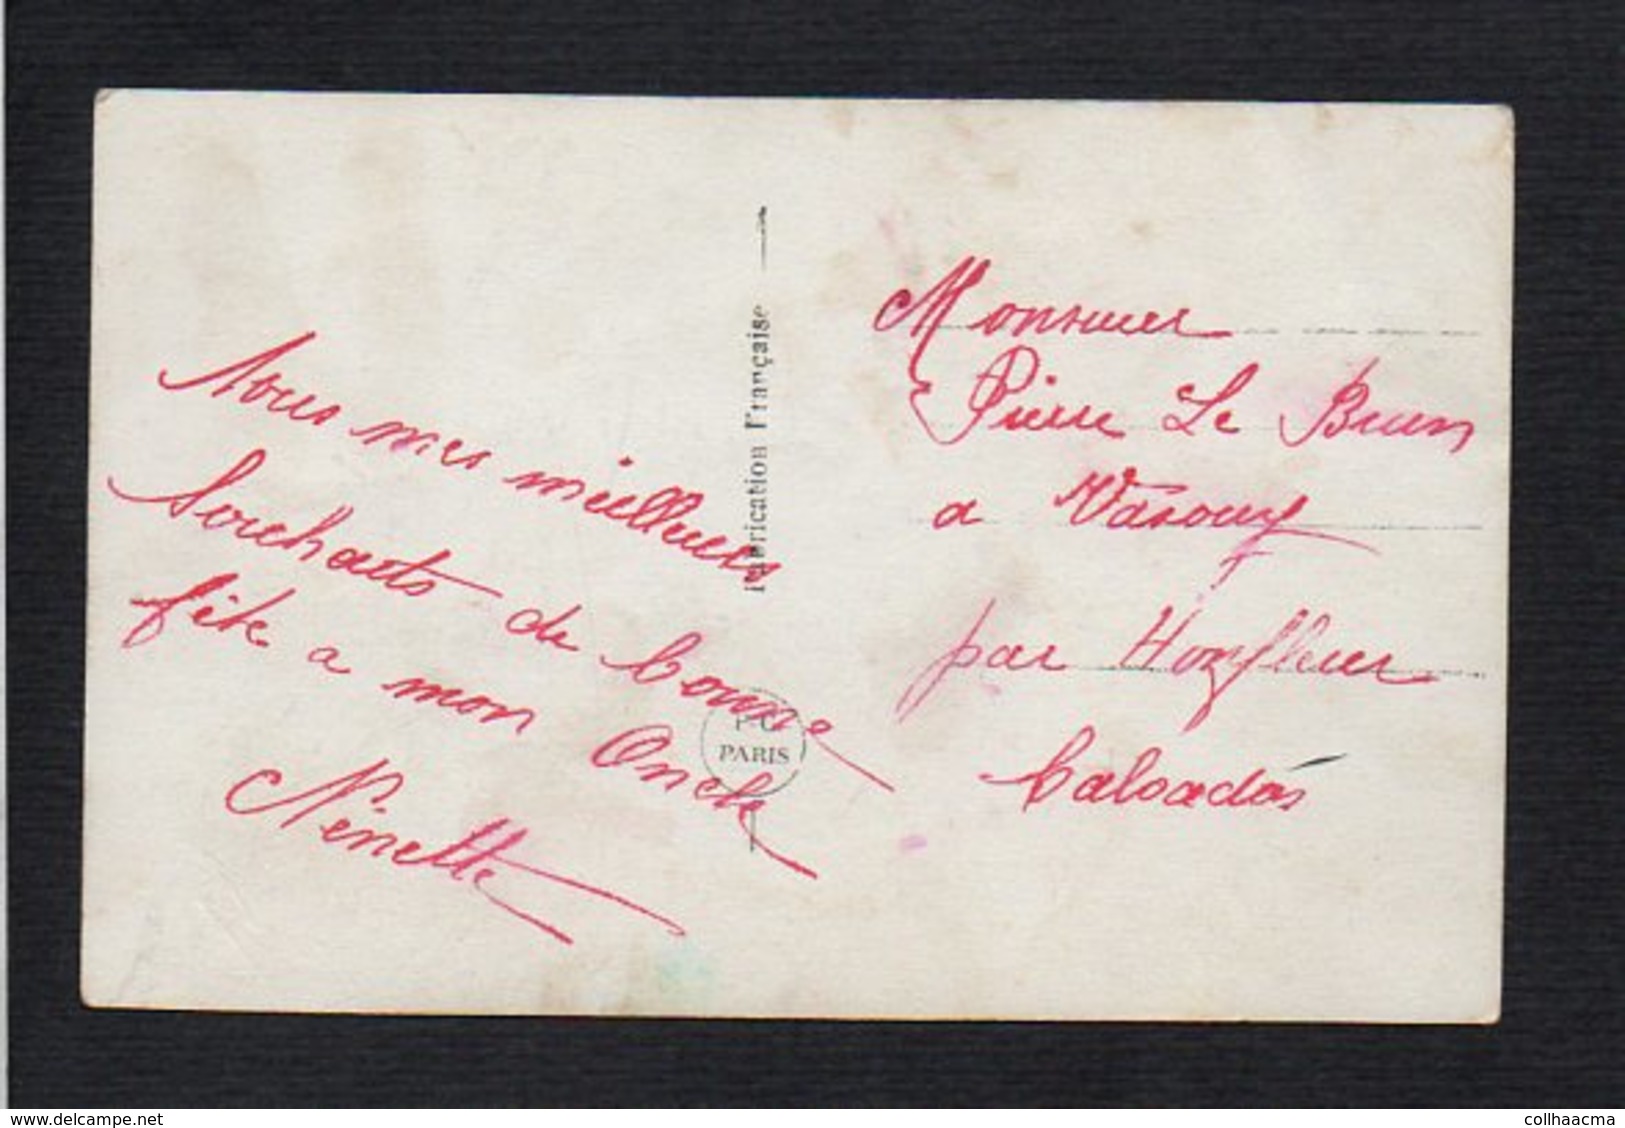 Tous mes meilleurs
Souhaits de bonne
fête a mon Oncle
Nénette
Fabrication Française
PARIS
Monsieur
Pierre Le Brun
a Vasouy
par Honfleur
Calvados
https://www.delcampe.net
collhaacma